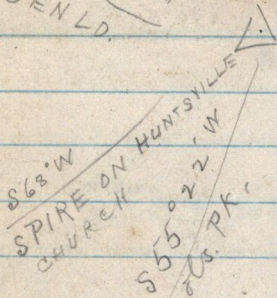 EN LD.
S68°W
SPIRE ON HUNTSVILLE
CHURCH
S55°22'W
PK.